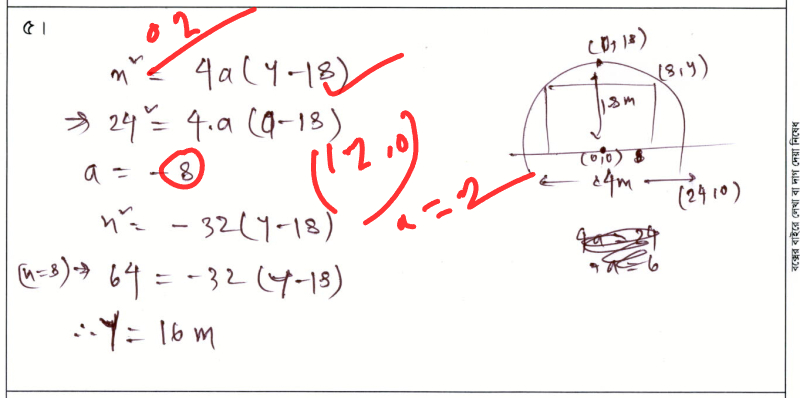 ৫।
02
x² = 4a(y-18)
⇒ 24² = 4.a (0-18)
a = -8
x² = -32(y-18)
(x=8) → 64 = -32 (y-18)
∴ y = 16 m
(12,0)
a = 2
(0,18)
(8,y)
18m
(0,0)
8
24m
(24,0)
a = 6
বক্সের বাইরে লেখা বা দাগ দেয়া নিষেধ